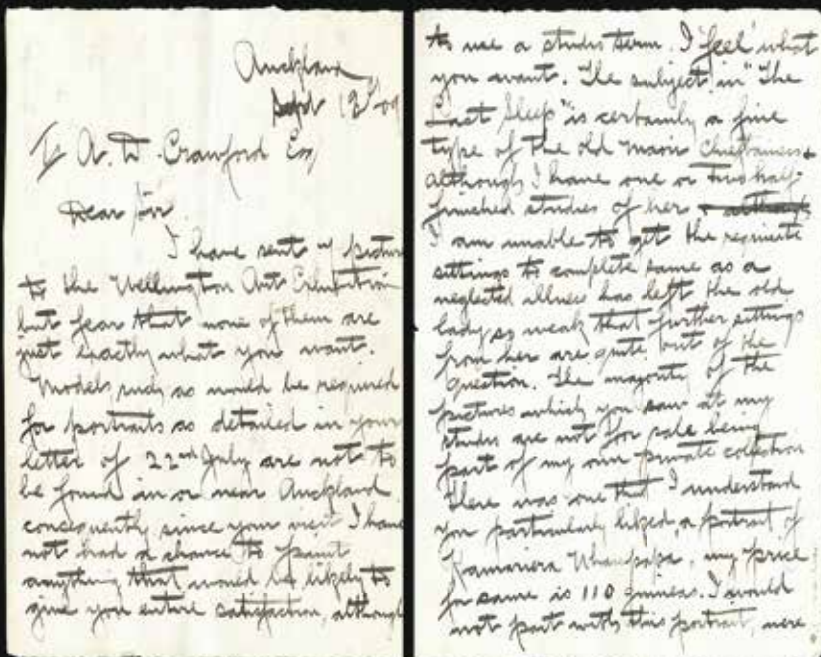 Auckland
Sept 13th 09
To A. D. Crawford Esq
Dear Sir
I have sent 4 pictures
to the Wellington Art Exhibition
but fear that none of them are
just exactly what you want.
Models such as would be required
for portraits as detailed in your
letter of 22nd July are not to
be found in or near Auckland
consequently since your visit I have
not had a chance to paint
anything that would be likely to
give you entire satisfaction, although
to use a studio term. I 'feel' what
you want. The subject in "The
Last Sleep" is certainly a fine
type of the old Maori Chieftainess &
although I have one or two half-
finished studies of her & although
I am unable to get the requisite
sittings to complete same as a
neglected illness has left the old
lady so weak that further sittings
from her are quite out of the
question. The majority of the
pictures which you saw at my
studio are not for sale being
part of my own private collection
There was one that I understand
you particularly liked, a portrait of
Kamariera Wharepapa, my price
for same is 110 guineas. I would
not part with this portrait, were